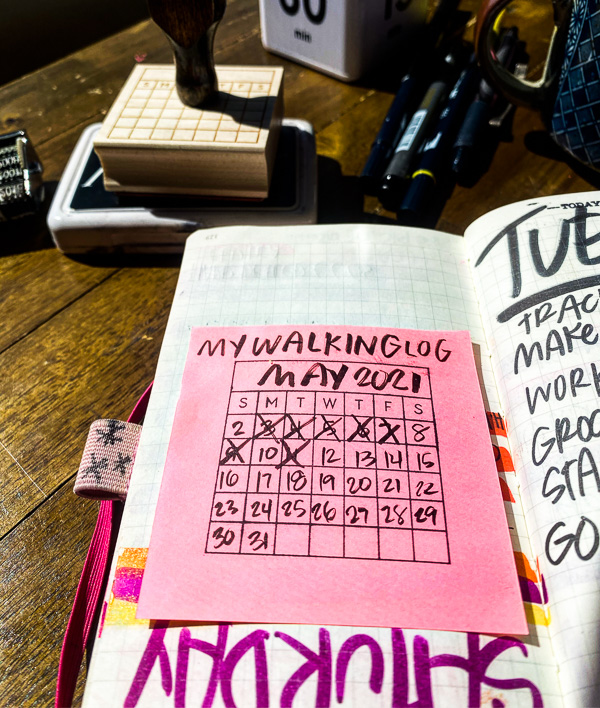 min
S M T W T F S
—TODAY
TUE
TRAC
MAKE
WORK
GROC
STA
GO
MY WALKING LOG
MAY 2021
S M T W T F S
2 3 4 5 6 7 8
9 10 11 12 13 14 15
16 17 18 19 20 21 22
23 24 25 26 27 28 29
30 31
SATURDAY